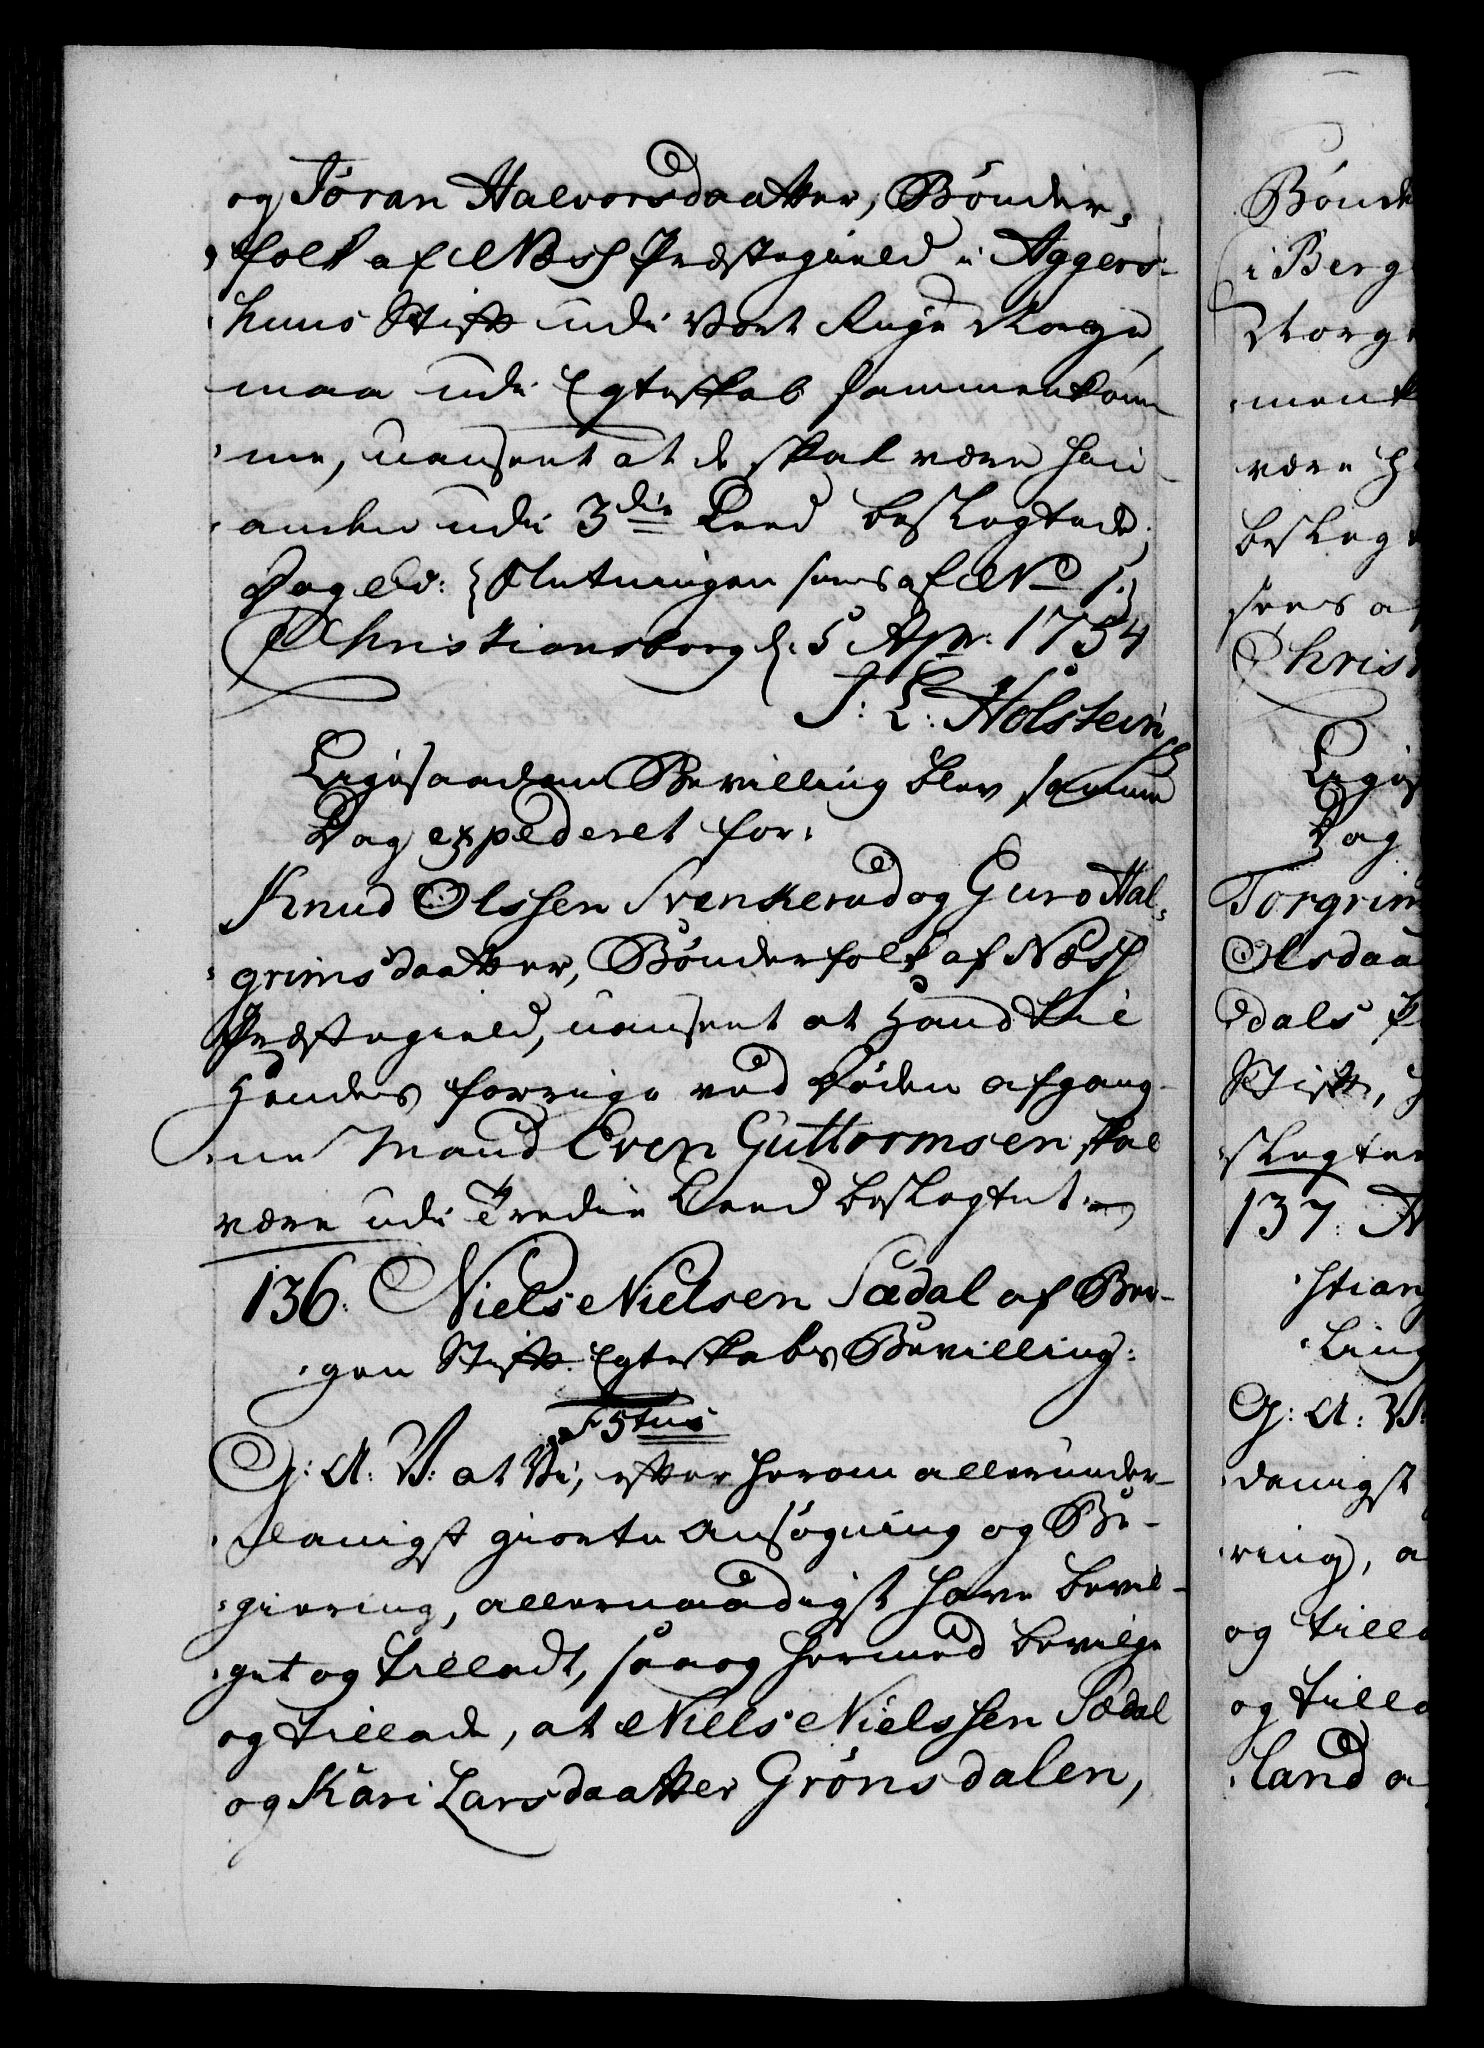 og Jøran Halvorsdaatter, Bønder-
folk af Næss Præstegield i Aggers-
huus Stift udi Vort Rige Norge,
maa udi Egteskab sammenkom-
me, uanseet at de skal være hin-
anden udi 3die Leed beslegtede.
Dog etc: {Slutningen sees af No 1.}
Christiansborg d: 5 Apr: 1754
J: L: Holstein
Ligesaadan Bevilling blev samme
Dag expederet for:
Knud Olssen Svenkerud og Guro Hal-
grimsdaatter, Bønderfolk af Næss
Præstegield, uanseet at Hand til
Hendes forrige ved Døden afgang-
ne Mand Even Guttormsen skal
være udi Tredie Leed beslegtet
136. Niels Nielsen Sædal af Ber-
gen Stift Egteskabs Bevilling:
G: A: V: at Vi, efter herom allerunder-
danigst giorte Ansøgning og Be-
giering, allernaadigst have bevil-
get og tilladt, saa og hermed bevilge
og tillade, at Niels Nielssen Sædal
og Kari Larsdaatter Grønsdalen,
Bønde
i Berg
Norge
menk
være h
besleg
sees af
Chris
Liges
Dag
Torgrim
Olsdaa
dals P
Stift, h
slegte
137. N
stians
ling
G: A: V:
danigst
ring, a
og tilla
og tilla
land a